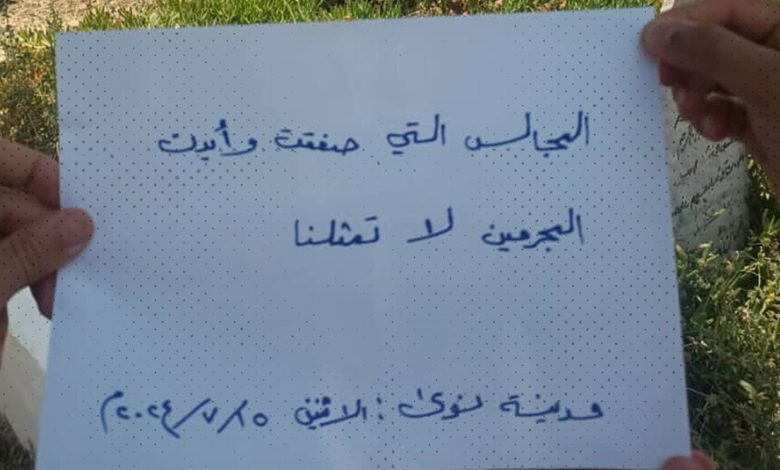 المجالس التي صفقت وأيدت
المجرمين لا تمثلنا
مدينة نوى : الاثنين ٢٠٢٤/٧/١٥م